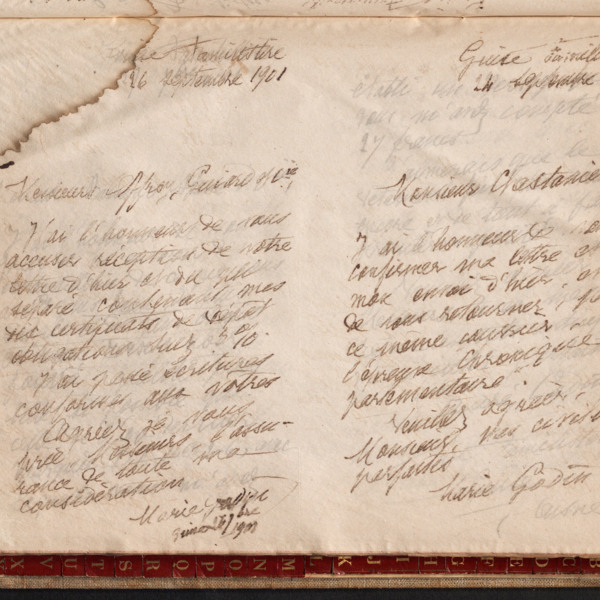 Guise Familistère
26 septembre 1901
Messieurs Offroy Guiard & Cie,
J'ai l'honneur de vous
accuser réception de votre
lettre d'hier et du pli
séparé contenant mes
certificats de dépôt
obligations
J'ai passé écritures
conformes aux vôtres
Agréez je vous
prie Messieurs, l'assu-
rance de toute ma
considération
Marie Godin
Guise Famili
24 septembre
Monsieur Castanié
J'ai l'honneur de
confirmer ma lettre
mon envoi d'hier,
de vous retourner
ce même courrier
l'épreuve Chronique
parlementaire.
Veuillez agréer,
Monsieur, mes civili
parfaites
Marie Godin
V U T S R Q P O N M L K J I H G F E D C B